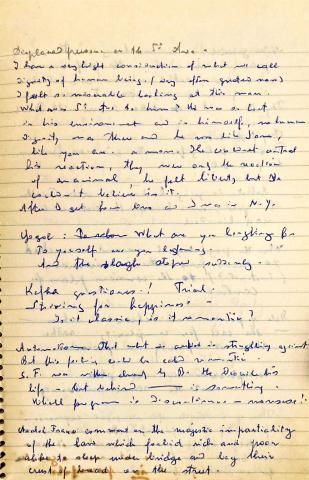 person on 14 St
I have a very high consideration of what we call
dignity of human being. (very often quoted now)
I felt so miserable looking at this man.
What was 5th Ave to him? He was so lost
in his environment and in himself, no human
dignity was there and he was like I am,
like you are a man. He could not control
his reaction, they were only the reactions
of an animal, he felt liberty but
couldn't believe in it.
After I get four I was in N.Y.
Gogol: What are you laughing for
To yourself are you laughing.
And the laugh stops suddenly.
Kafka questioness! Trial.
Starving for happiness
Is it classic, is it romantic?
Automation. That what an artist is struggling against
But his feeling could be called romantic.
S. F. was written already by B. He his
life - but behind is something.
Whole program is - nonsense!
Anatol France comment on the majestic impartiality
of the laws which forbid rich and poor
alike to sleep under bridge and beg their
crust of bread on the street.